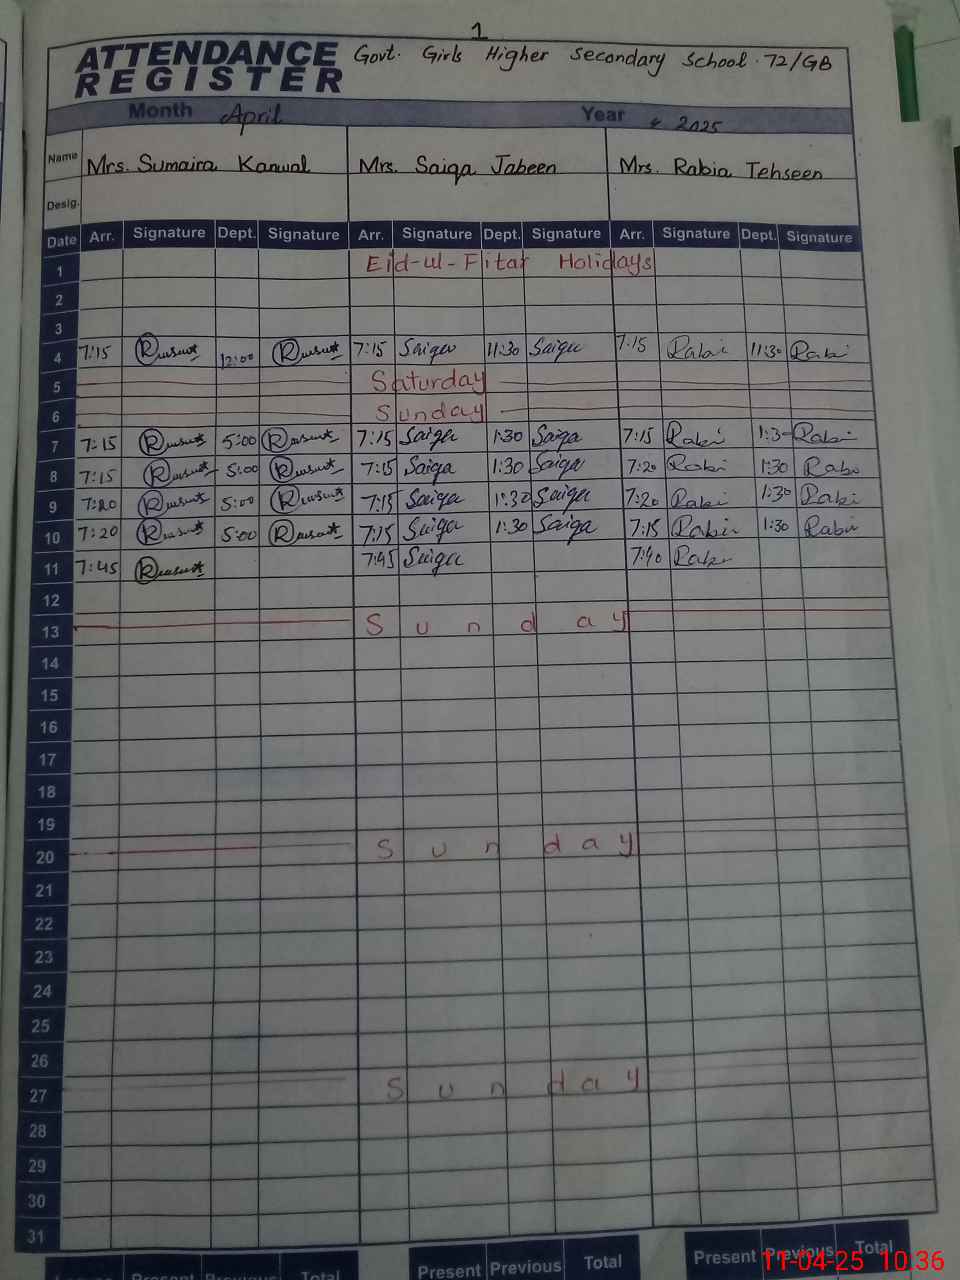 1
ATTENDANCE REGISTER Govt. Girls Higher Secondary School. 72/GB
Month April Year 2025
Name Mrs. Sumaira Kanwal Mrs. Saiqa Jabeen Mrs. Rabia Tehseen
Desig.
Date Arr. Signature Dept. Signature Arr. Signature Dept. Signature Arr. Signature Dept. Signature
1 Eid-ul-Fitar Holidays
2
3
4 7:15 12:00 7:15 Saiqa 11:30 Saiqa 7:15 Rabi 11:30 Rabi
5 Saturday
6 Sunday
7 7:15 5:00 7:15 Saiqa 1:30 Saiqa 7:15 Rabi 1:30 Rabi
8 7:15 5:00 7:15 Saiqa 1:30 Saiqa 7:20 Rabi 1:30 Rabi
9 7:20 5:00 7:15 Saiqa 1:30 Saiqa 7:20 Rabi 1:30 Rabi
10 7:20 5:00 7:15 Saiqa 1:30 Saiqa 7:15 Rabi 1:30 Rabi
11 7:45 7:45 Saiqa 7:40 Rabi
12
13 Sunday
14
15
16
17
18
19
20 Sunday
21
22
23
24
25
26
27 Sunday
28
29
30
31
Present Previous Total Present Previous Total Present Previous Total
11-04-25 10:36